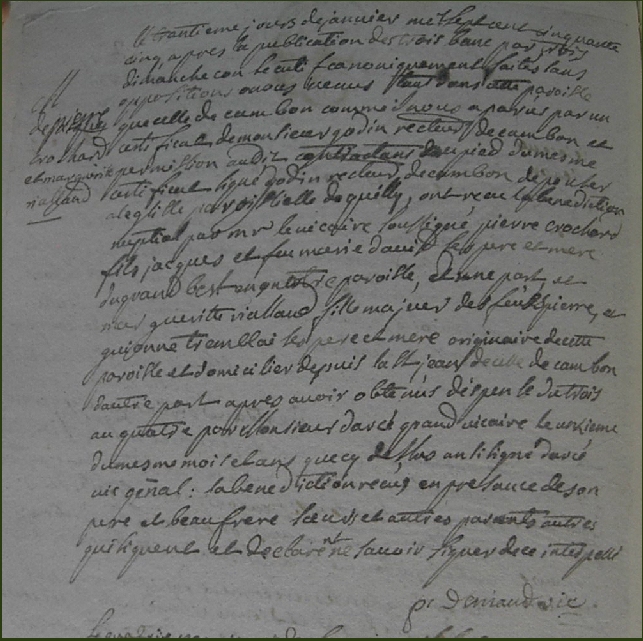 le trantieme jours de janvier mil sept cent cinquante
cinq, apres la publication des trois banc par trois
dimanche consecuti f canoniquement faites sans
oppositions avoes venues tant dans cette paroisse
M
de pierre que celle de cambon comme nous a parus par un
crochard certificat de monsieur godin recteur de cambon et
et marguerite permission audit contractans au pied du mesme
viallaud certificat signé godin recteur de cambon de
a leglise paroissielle de quilly, ont receu la benediction
nuptial par mr le vicaire soussigné, pierre crochard
fils jacques et feu marie david ses pere et mere
du grand best en notre paroisse, et une part, et
marguerite viallaud fille majeur de feu pierre, et
guionne tremblai ses pere et mere originaire de cette
paroisse et domicilier depuis la St jean de cambon
dautre part apres avoir obtenus dispense du trois
au quatre par Monsieur darcé grand vicaire le onzieme
du mesme mois et ans que cy dessus ansi signé darcé
vic genal : la benediction reçus en presence de son
pere et beau frere sœurs et autres parents autres
qui signent et declarent ne savoir signer de ce interpellé
pr Deniaud vic